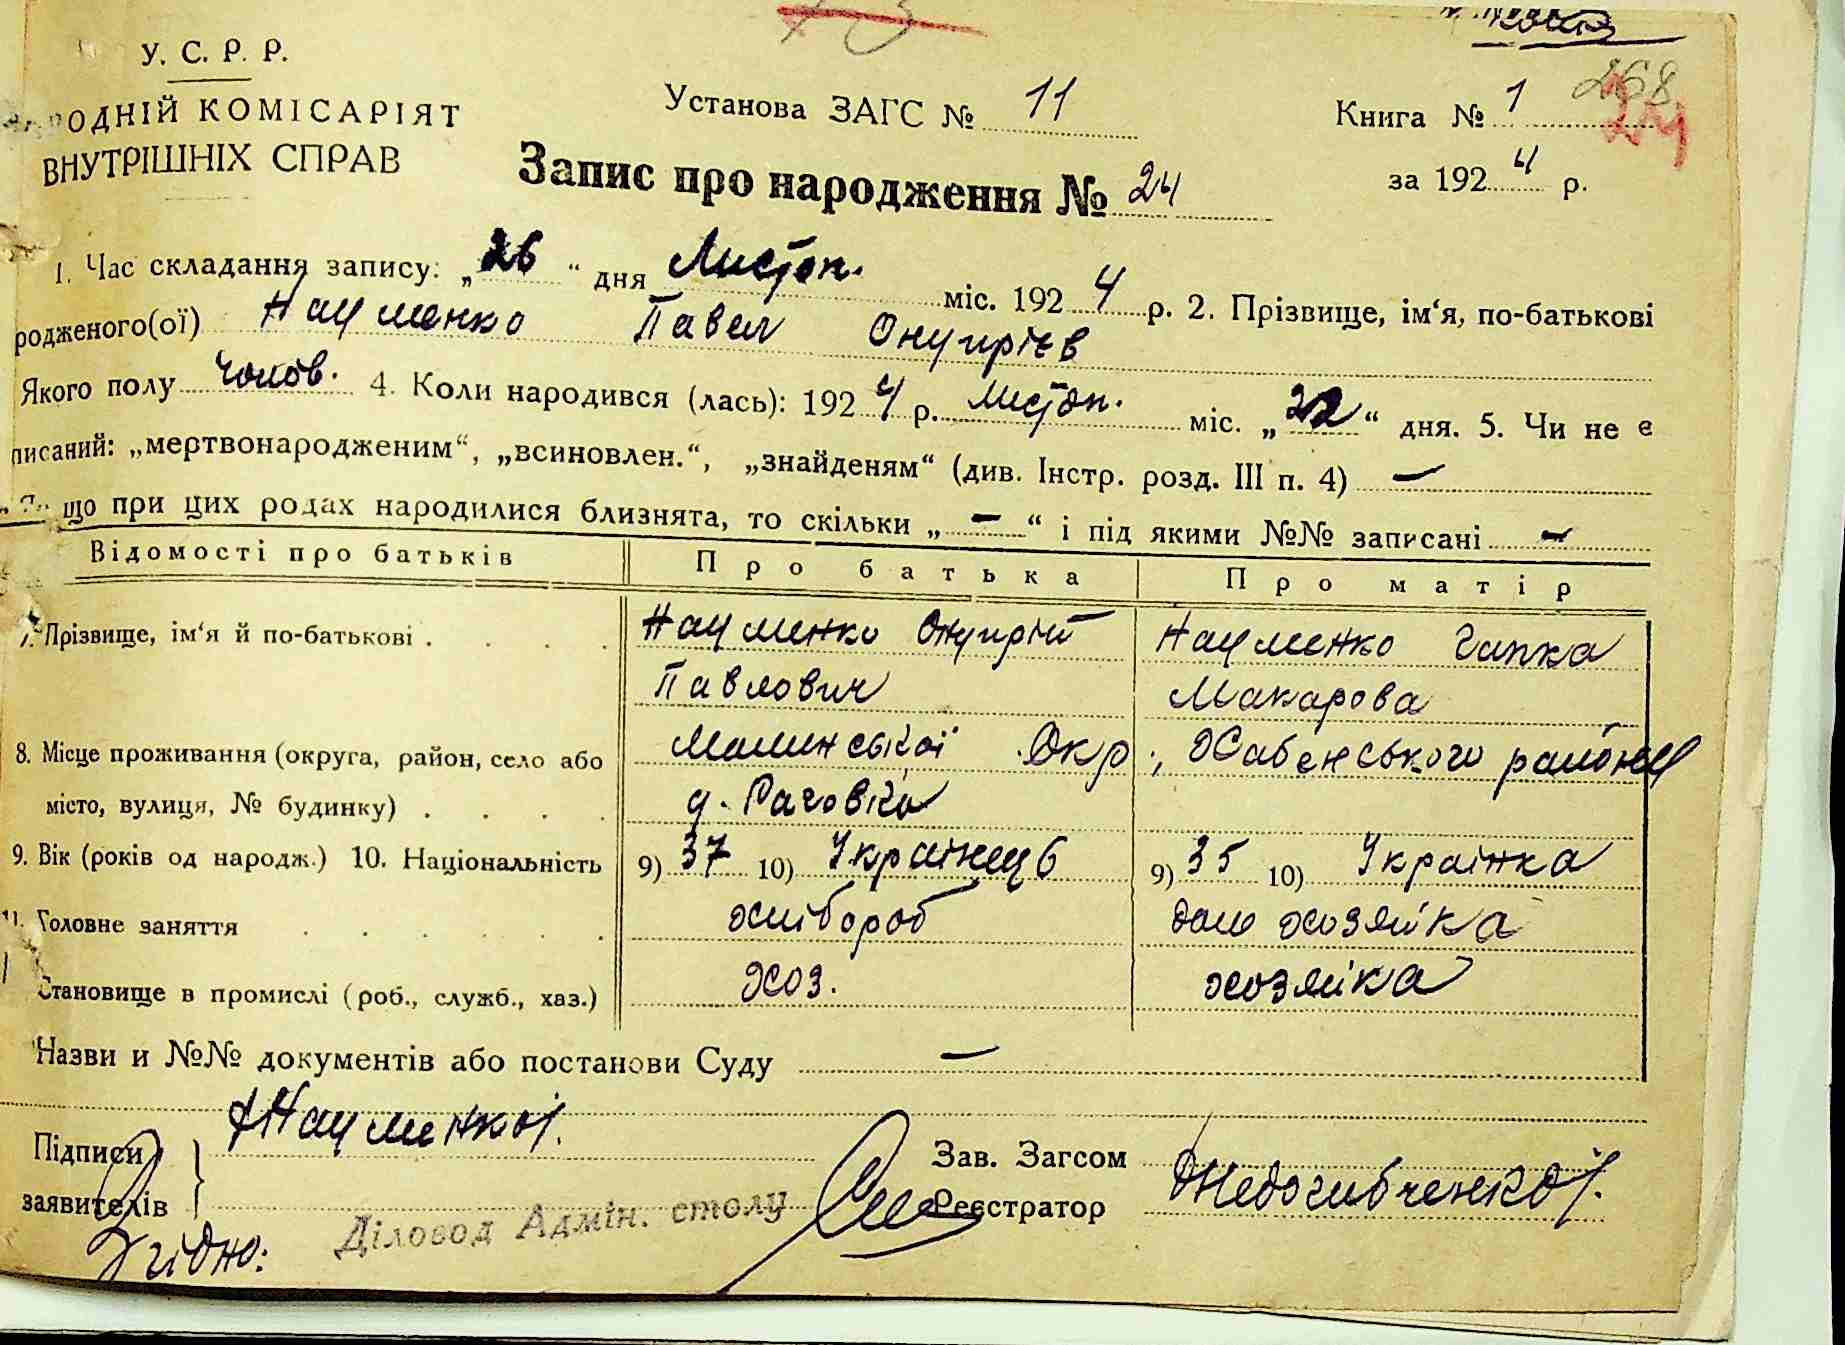 У. С. Р. Р.
НАРОДНІЙ КОМІСАРІЯТ
ВНУТРІШНІХ СПРАВ
Установа ЗАГС № 11
Книга № 1
268
за 1924 р.
Запис про народження № 24
1. Час складання запису: „26“ дня Листоп. міс. 1924 р. 2. Прізвище, ім‘я, по-батькові
родженого(ої) Науменко Павел Онупріев
Якого полу чолов. 4. Коли народився (лась): 1924 р. Листоп. міс. „22“ дня. 5. Чи не є
писаний: „мертвонародженим“, „всиновлен.“, „знайденям“ (див. Інстр. розд. III п. 4) —
що при цих родах народилися близнята, то скільки „—“ і під якими №№ записані —
Відомості про батьків Про батька Про матір
7. Прізвище, ім‘я й по-батькові . . . . Науменко Онупрій Науменко Гапка
Павлович Макарова
8. Місце проживання (округа, район, село або Малинської Окр., Хабенського району
місто, вулиця, № будинку) . . . . д. Раговка
9. Вік (років од народж.) 10. Національність 9) 37 10) Українець 9) 35 10) Українка
11. Головне заняття . . . . . . хлібороб дом хозяйка
Становище в промислі (роб., служб., хаз.) хоз. хозяйка
Назви и №№ документів або постанови Суду —
Підписи Науменко
заявителів
Зав. Загсом
Реєстратор
Діловод Адмін. столу
Згідно: